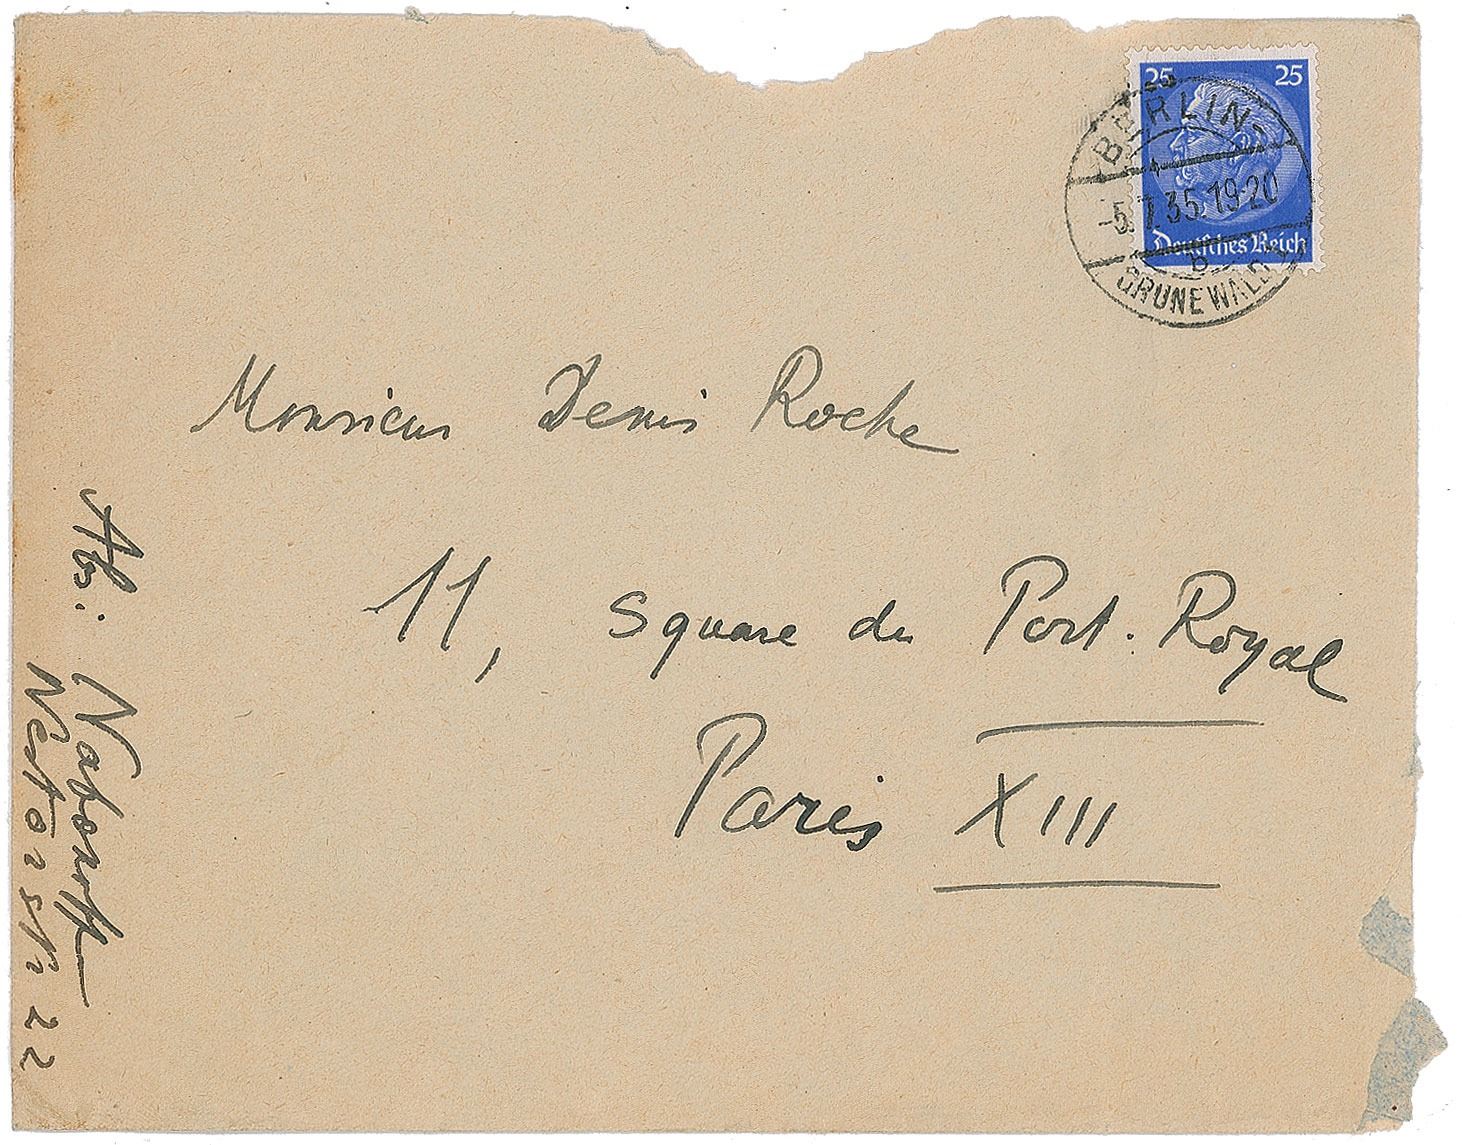 25 25
Deutsches Reich
BERLIN-
-5.7.35.19-20
b
GRUNEWALD 1
Monsieur Denis Roche
11, Square du Port-Royal
Paris XIII
Ab: Nabokoff
Nestorstr 22